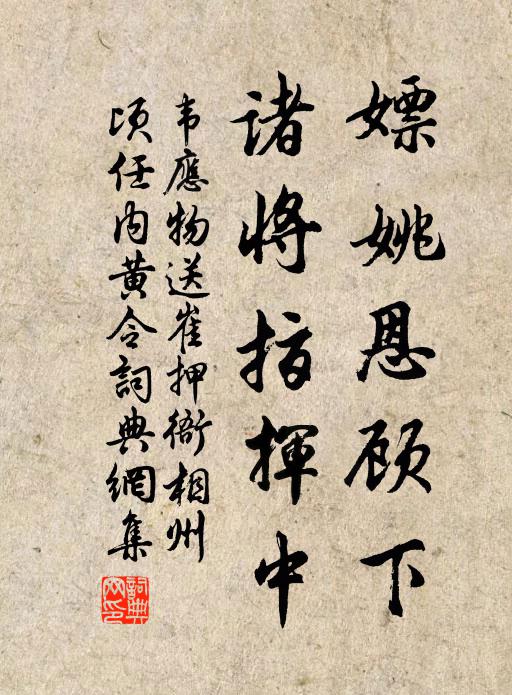 嫖姚恩顾下
诸將指揮中
韦應物送崔押衙相州
顷任内黄令詞典網集
詞典網印